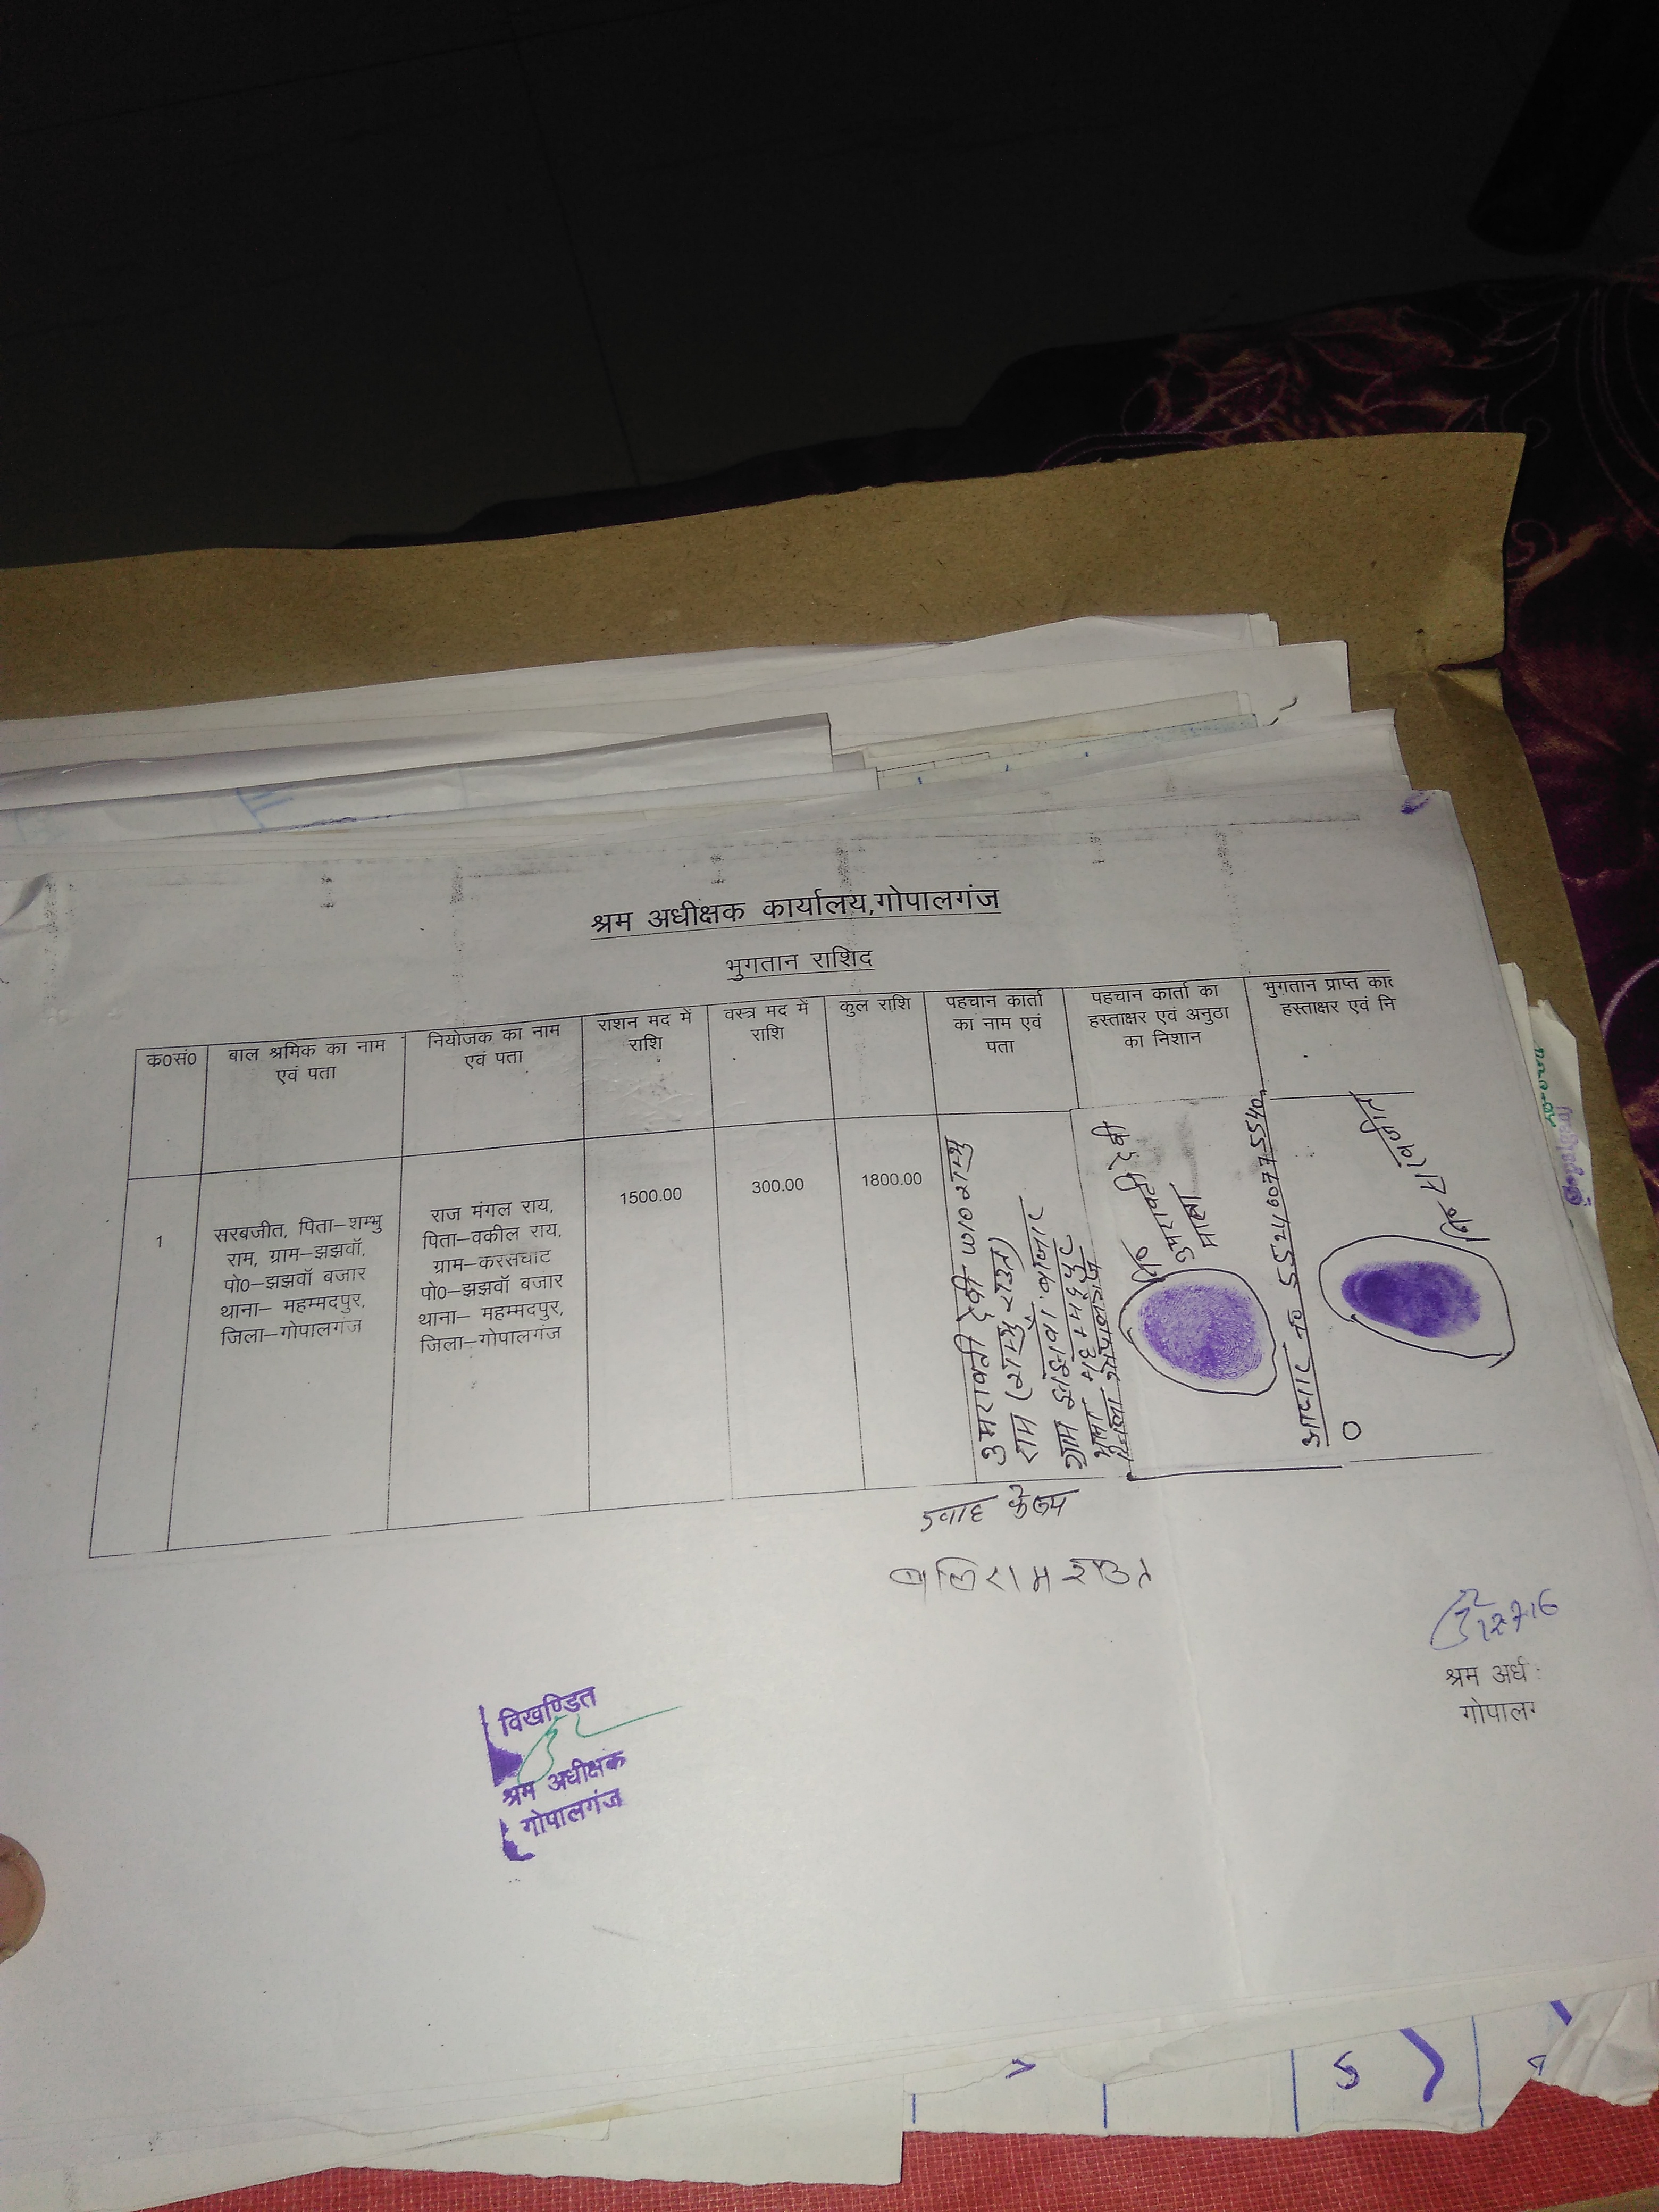 श्रम अधीक्षक कार्यालय,गोपालगंज
भुगतान राशिद
क0सं0
बाल श्रमिक का नाम
एवं पता
नियोजक का नाम
एवं पता
राशन मद में
राशि
वस्त्र मद में
राशि
कुल राशि
पहचान कार्ता
का नाम एवं
पता
पहचान कार्ता का
हस्ताक्षर एवं अनुठा
का निशान
भुगतान प्राप्त कार
हस्ताक्षर एवं नि
1
सरबजीत, पिता–शम्भु
राम, ग्राम–झझवॉ,
पो0–झझवॉ बजार
थाना– महम्मदपुर,
जिला–गोपालगंज
राज मंगल राय,
पिता–वकील राय,
ग्राम–करसघाट
पो0–झझवॉ बजार
थाना– महम्मदपुर,
जिला–गोपालगंज
1500.00
300.00
1800.00
उमरावती देवी w/o शम्भु
राम (शम्भु राउत)
ग्राम झझवा बाजार
थाना महम्मदपुर
जिला गोपालगंज
नि0
उमरावती देवी
माता
आधार न0
नि0 सर्वजीत
0
बलिराम राउत
विखण्डित
श्रम अधीक्षक
गोपालगंज
श्रम अर्ध
गोपाल